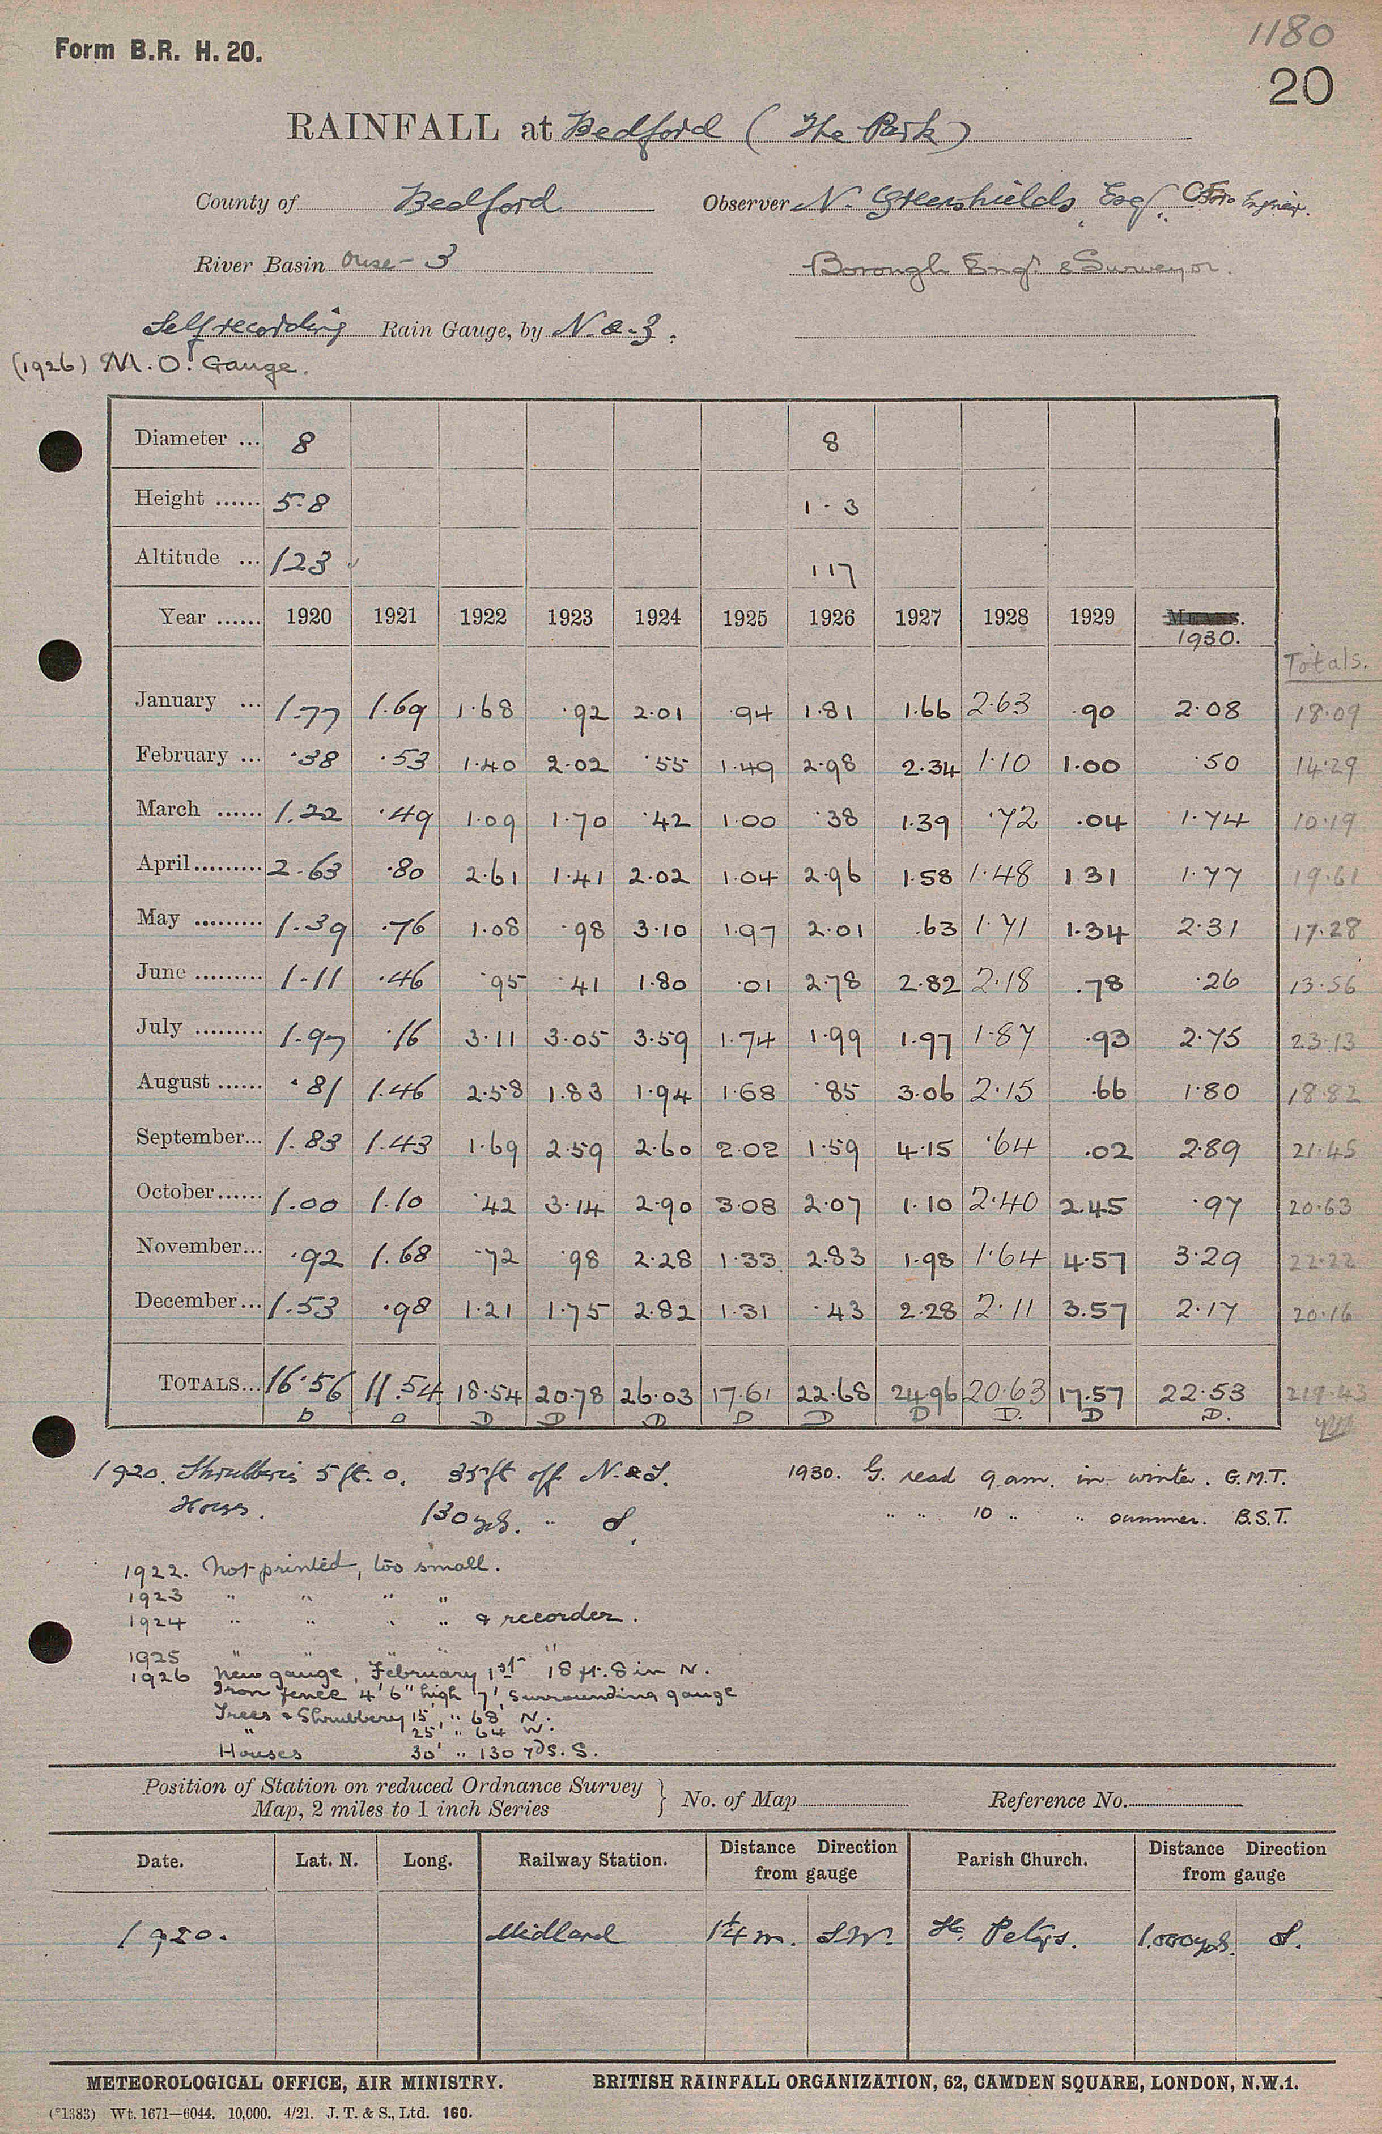 1180
Form B.R. H. 20.
20
RAINFALL at Bedford (The Park)
County of Bedford Observer N. Greenshields, Esq.
River Basin Ouse - 3 Borough Engr. & Surveyor.
Self recording Rain Gauge, by N. & Z.
(1926) M.O. Gauge.
Diameter ... 8 8
Height ...... 5-8 1-3
Altitude ... 123 117
Year ...... 1920 1921 1922 1923 1924 1925 1926 1927 1928 1929 1930.
Totals.
January ... 1.77 1.69 1.68 .92 2.01 .94 1.81 1.66 2.63 .90 2.08 18.09
February ... .38 .53 1.40 2.02 .55 1.49 2.98 2.34 1.10 1.00 .50 14.29
March ...... 1.22 .49 1.09 1.70 .42 1.00 .38 1.39 .72 .04 1.74 10.19
April ......... 2.63 .80 2.61 1.41 2.02 1.04 2.96 1.58 1.48 1.31 1.77 19.61
May ......... 1.39 .76 1.08 .98 3.10 1.97 2.01 .63 1.71 1.34 2.31 17.28
June ......... 1.11 .46 .95 .41 1.80 .01 2.78 2.82 2.18 .78 .26 13.56
July ......... 1.97 .16 3.11 3.05 3.59 1.74 1.99 1.97 1.87 .93 2.75 23.13
August ...... .81 1.46 2.58 1.83 1.94 1.68 .85 3.06 2.15 .66 1.80 18.82
September... 1.83 1.43 1.69 2.59 2.60 2.02 1.59 4.15 .64 .02 2.89 21.45
October...... 1.00 1.10 .42 3.14 2.90 3.08 2.07 1.10 2.40 2.45 .97 20.63
November... .92 1.68 .72 .98 2.28 1.33 2.83 1.98 1.64 4.57 3.29 22.22
December... 1.53 .98 1.21 1.75 2.82 1.31 .43 2.28 2.11 3.57 2.17 20.16
TOTALS... 16.56 11.54 18.54 20.78 26.03 17.61 22.68 24.96 20.63 17.57 22.53 219.43
D D D D D D D D D. D D.
1920. Shrubberies 5 ft. 0. 35 ft off N. & S. 1930. G. read 9 a.m. in winter. G.M.T.
House. 130 yds. " S. " " 10 " " summer. B.S.T.
1922. Not printed, too small.
1923 " " " "
1924 " " " " & recorder.
1925 " " "
1926 New gauge, February 1st 18 ft. 8 in N.
Iron fence 4' 6" high 7' surrounding gauge
Trees & Shrubbery 15' " 68' N.
" 25' " 64 W.
Houses 30' " 130 yds. S.
Position of Station on reduced Ordnance Survey Map, 2 miles to 1 inch Series } No. of Map Reference No.
Date. Lat. N. Long. Railway Station. Distance Direction from gauge Parish Church. Distance Direction from gauge
1920. Midland 1¼ m. S.W. St. Peters. 1,000 yds. S.
METEOROLOGICAL OFFICE, AIR MINISTRY. BRITISH RAINFALL ORGANIZATION, 62, CAMDEN SQUARE, LONDON, N.W.1.
(*1383) Wt. 1671—6044. 10,000. 4/21. J. T. & S., Ltd. 160.